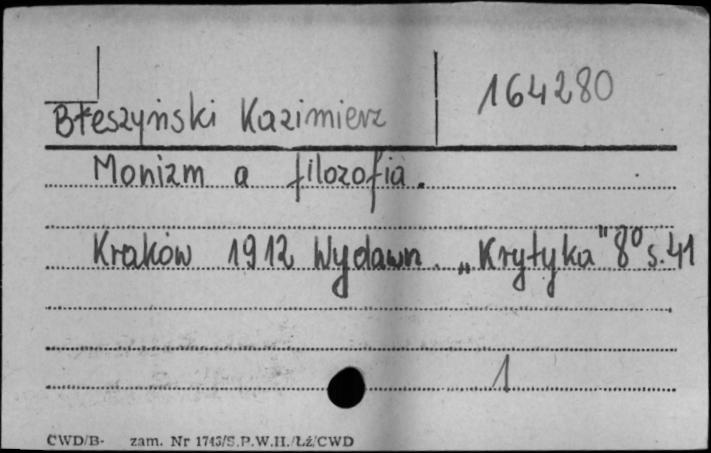 Błeszyński Kazimierz 164280
Monizm a filozofia.
Kraków 1912 Wydawn. „Krytyka" 8° s. 41
1
CWD/B- zam. Nr 1743/S.P.W.H./Łź/CWD